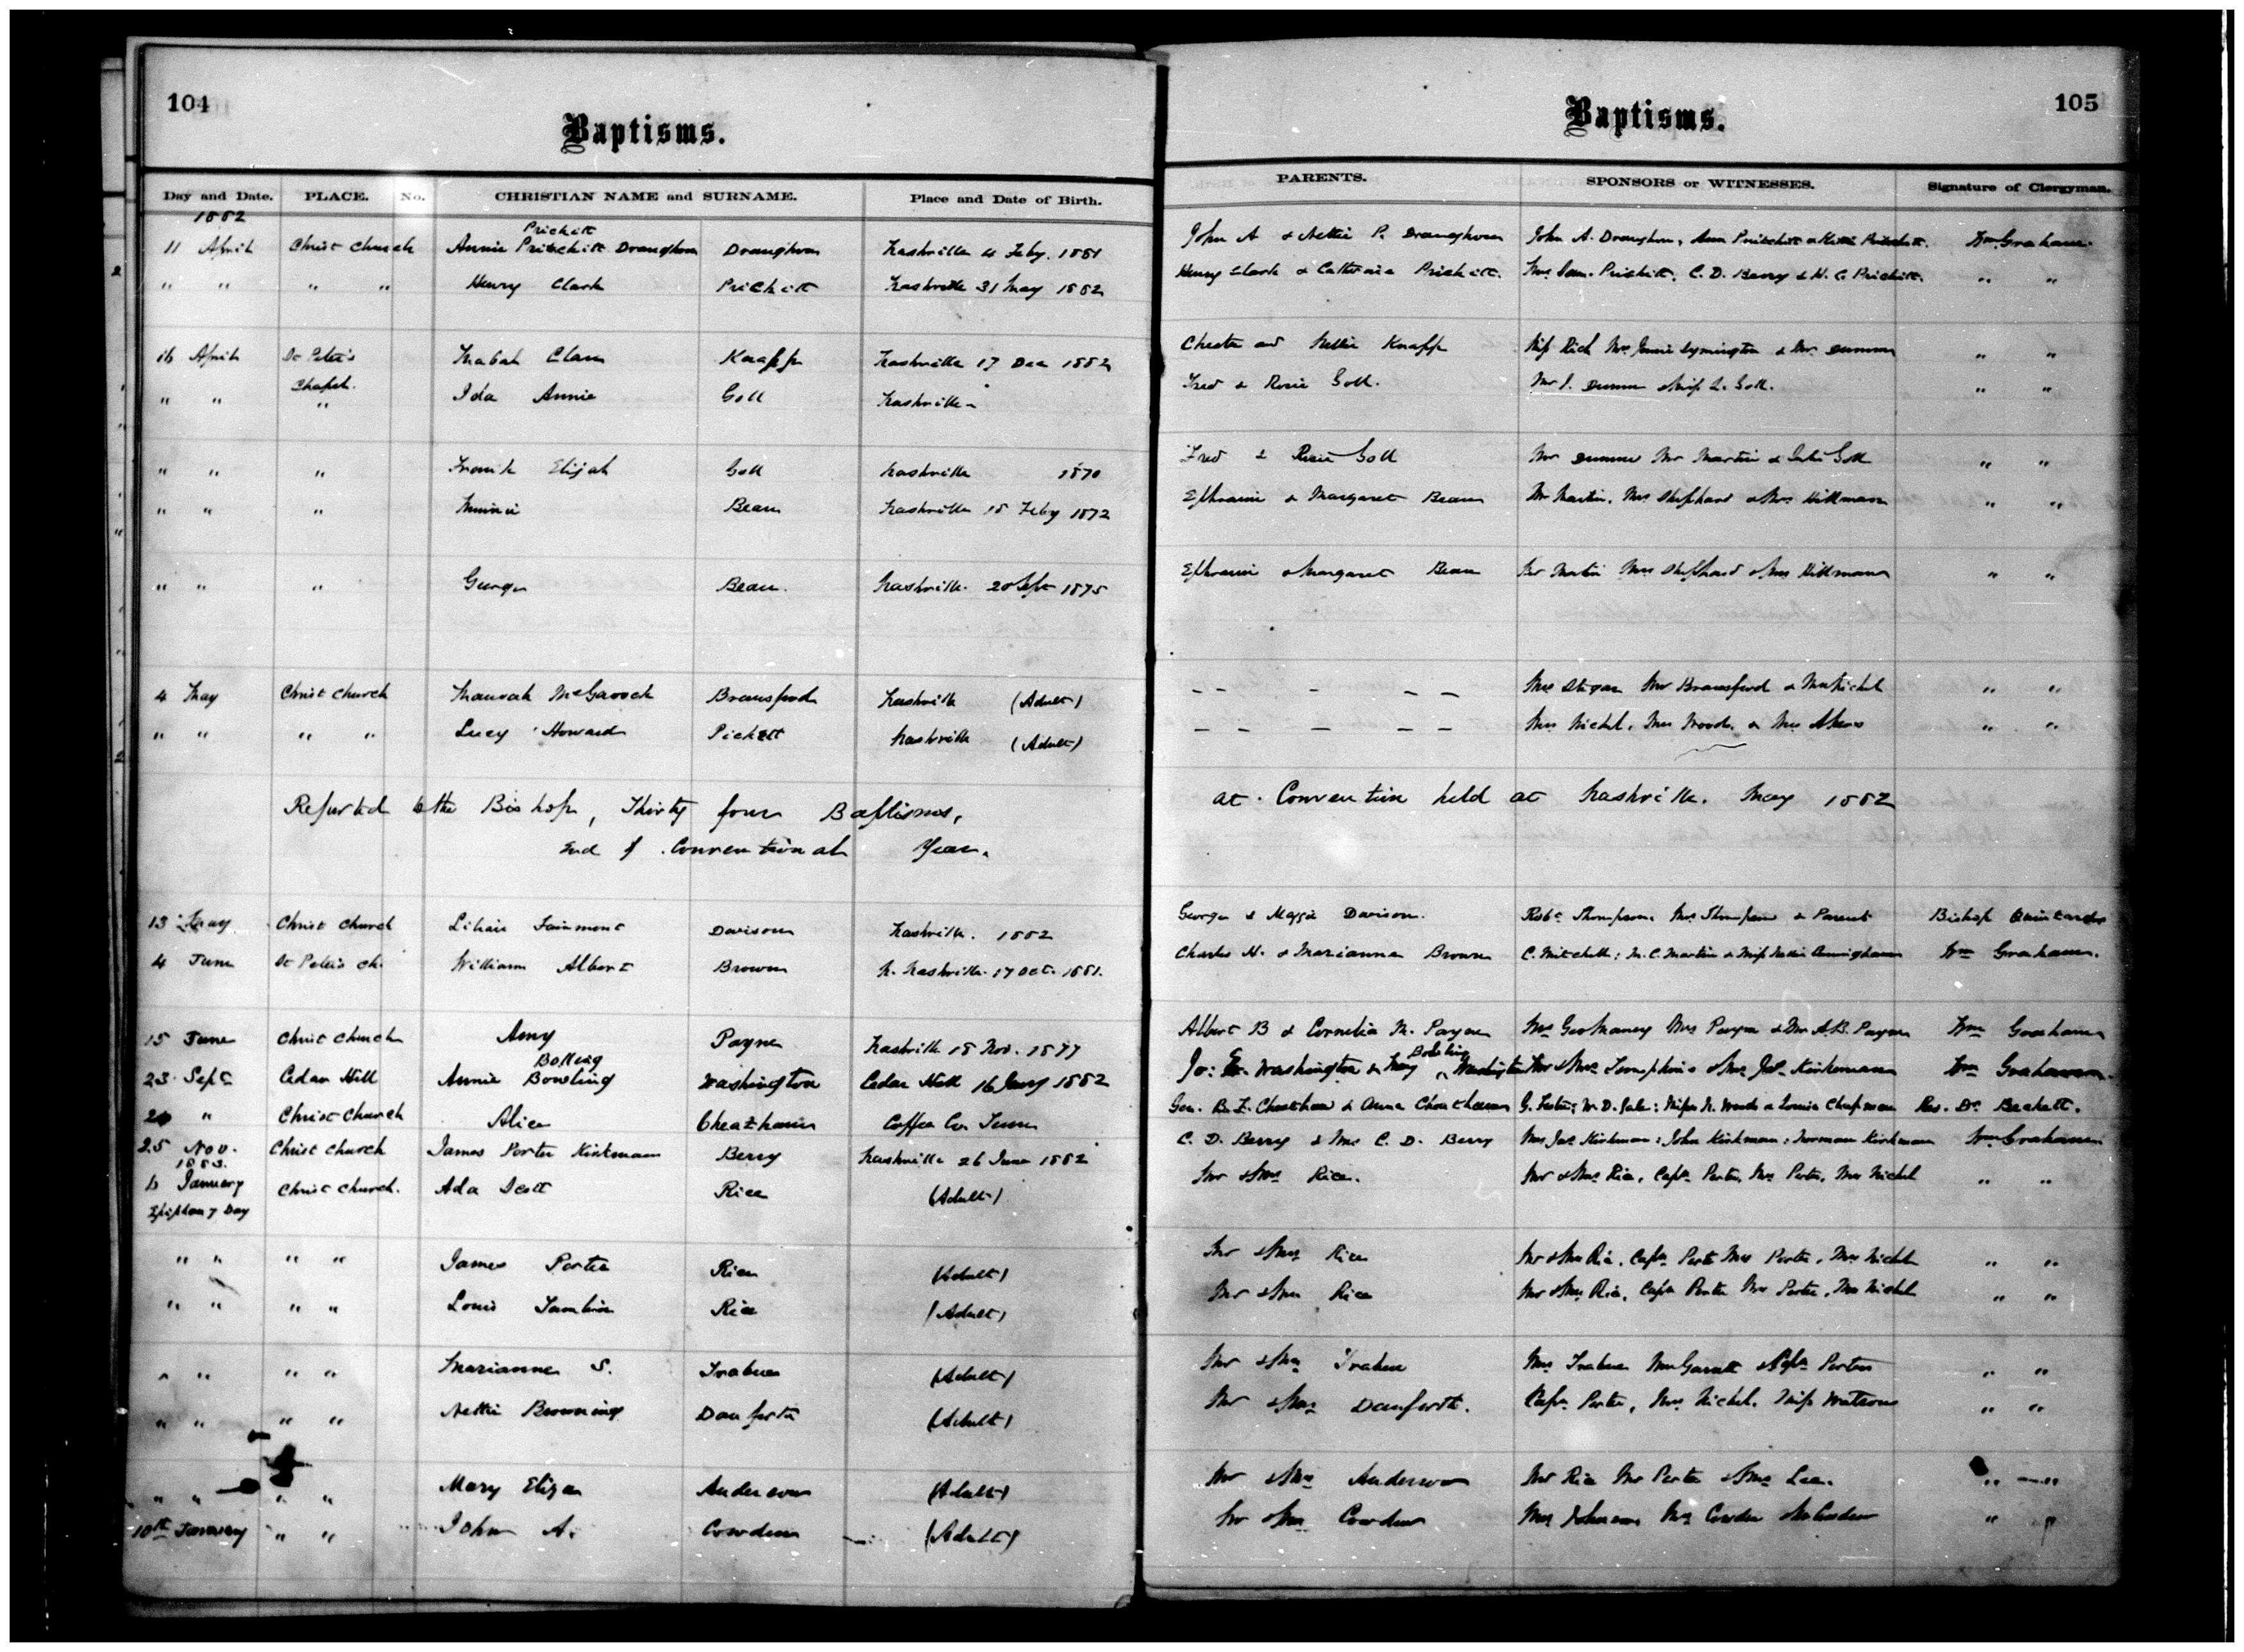 104
Baptisms.
Day and Date. PLACE. No. CHRISTIAN NAME and SURNAME. Place and Date of Birth.
1882
Prickett
11 April Christ Church Annie Pritchitt Draughon Draughon Nashville 4 Feby. 1881
" " " " Henry Clark Prickett Nashville 31 May 1882
16 April St Peter's Knapp Nashville 17 Dec 1882
Chapel.
" " " Ida Annie Goll Nashville
" " " Frank Elijah Goll Nashville 1870
" " " Minnie Bean Nashville 18 Feby 1872
" " " George Bean. Nashville 20 Sept 1875
4 May Christ Church McGavock Bransford Nashville (Adult)
" " " " Lucy Howard Pickett Nashville (Adult)
Reported to the Bishop, Thirty four Baptisms,
End of Conventional Year.
13 May Christ Church Lilian Fairmont Davison Nashville. 1882
4 June St Peter's Ch. William Albert Brown N. Nashville 17 Oct. 1881.
15 June Christ Church Amy Payne Nashville 18 Nov. 1877
Bolling
23 Sept Cedar Hill Annie Bowling Washington Cedar Hill 16 Jany 1882
" Christ Church Alice Cheatham Coffee Co. Tenn
25 Nov. Christ Church James Porter Kirkman Berry Nashville 26 June 1882
1883.
6 January Christ Church. Ada Scott Rice (Adult)
Epiphany Day
" " " " James Porter Rice (Adult)
" " " " Louis Rice (Adult)
" " " " Marianne S. Trabue (Adult)
" " " " Nettie Browning Danforth (Adult)
" " " " Mary Eliza Anderson (Adult)
10th January " " John A. Cowden (Adult)
105
Baptisms.
PARENTS. SPONSORS or WITNESSES. Signature of Clergyman.
John A & Nettie P. Draughon John A. Draughon, Ann Pritchitt & Pritchitt. Wm Graham.
Henry Clark & Catherine Prickett. Mrs Prickitt, C. D. Berry & H. C. Prickitt. " "
Chester and Nellie Knapp Miss Rich Mrs Jennie Symington & Mr. Dummer " "
Fred & Rosie Goll. Mr J. Dummer & Miss Goll. " "
Fred & Rosie Goll Mr Dummer Mr Martin & Goll " "
Ephraim & Margaret Bean Mr Martin, Mrs Shephard & Mrs Hillman " "
Ephraim & Margaret Bean Mr Martin Mrs Shephard & Mrs Hillman " "
– – – – – Mrs Mr Bransford & Mrs Nichol " "
– – – – – Mrs Nichol, Mrs Woods & Mrs " "
at Convention held at Nashville. May 1882
George & Maggie Davison. Robt Thompson, Mrs Thompson & Parents Bishop Quintard
Charles H. & Marianna Brown C. Mitchell: M. C. Martin & Miss Nellie Wm Graham.
Albert B & Cornelia M. Payne Mrs Geo Maney Mrs Payne & Mr A.B. Payne Wm Graham
Bolling
Jo: E. Washington & Mary Washington Mr & Mrs Tompkins & Mrs Jas Kirkman Wm Graham
Gen. B. F. Cheatham & Anna Cheatham G. Foster, W. D. Gale: Misses N. Woods & Louise Chapman Rev. Dr Beckett.
C. D. Berry & Mrs C. D. Berry Mrs Jas Kirkman: John Kirkman: Norman Kirkman Wm Graham
Mr & Mrs Rice. Mr & Mrs Rice, Capt Porter, Mrs Porter, Mrs Nichol " "
Mr & Mrs Rice Mr & Mrs Rice, Capt Porter Mrs Porter, Mrs Nichol " "
Mr & Mrs Rice Mr & Mrs Rice, Capt Porter Mrs Porter, Mrs Nichol " "
Mr & Mrs Trabue Mrs Trabue Mrs Garrett & Capt Porter " "
Mr & Mrs Danforth. Capt Porter, Mrs Nichol. Miss Watson " "
Mr & Mrs Anderson Mr Rice Mr Porter & Mrs Lea. " "
Mr & Mrs Cowden Mrs Johnson Mrs Cowden & Mr Cowden " "